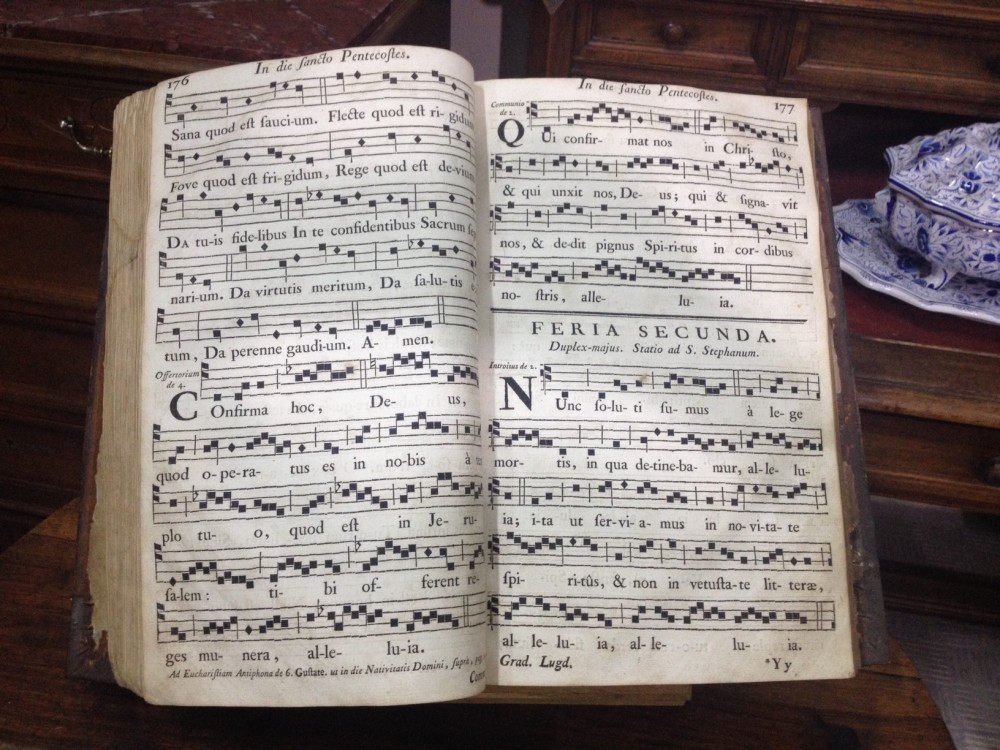 176
In die ſancto Pentecoſtes.
Sana quod eſt ſauci-um. Flecte quod eſt ri- gidum
Fove quod eſt fri-gidum, Rege quod eſt de-vium
DA tu-is fide-libus In te confidentibus Sacrum
nari-um. Da virtutis meritum, Da ſa-lu-tis
tum, Da perenne gaudi-um. A- men.
Offertorium
de 4.
COnfirma hoc, De- us,
quod o-pe-ra- tus es in no-bis à
plo tu- o, quod eſt in Je- ru-
ſa-lem : ti- bi of- ferent re-
ges mu- nera, al-le- lu-ia.
Ad Euchariſtiam Antiphona de 6. Guſtate. ut in die Nativitatis Domini, ſuprà,
In die ſancto Pentecoſtes.
177
Communio
de 2.
QUi confir- mat nos in Chri- ſto,
& qui unxit nos, De- us; qui & ſigna- vit
nos, & de-dit pignus Spi-ri-tus in cor- dibus
no- ſtris, alle- lu- ia.
FERIA SECUNDA.
Duplex-majus. Statio ad S. Stephanum.
Introitus de 2.
NUnc ſo-lu- ti fu- mus à le- ge
mor- tis, in qua de-tine-ba- mur, al-le- lu-
ia; i-ta ut ſer-vi- a- mus in no-vi-ta- te
ſpi- ri-tûs, & non in vetuſta-te lit- teræ,
al- le- lu- ia, al- le- lu- ia.
Grad. Lugd.
*Yy